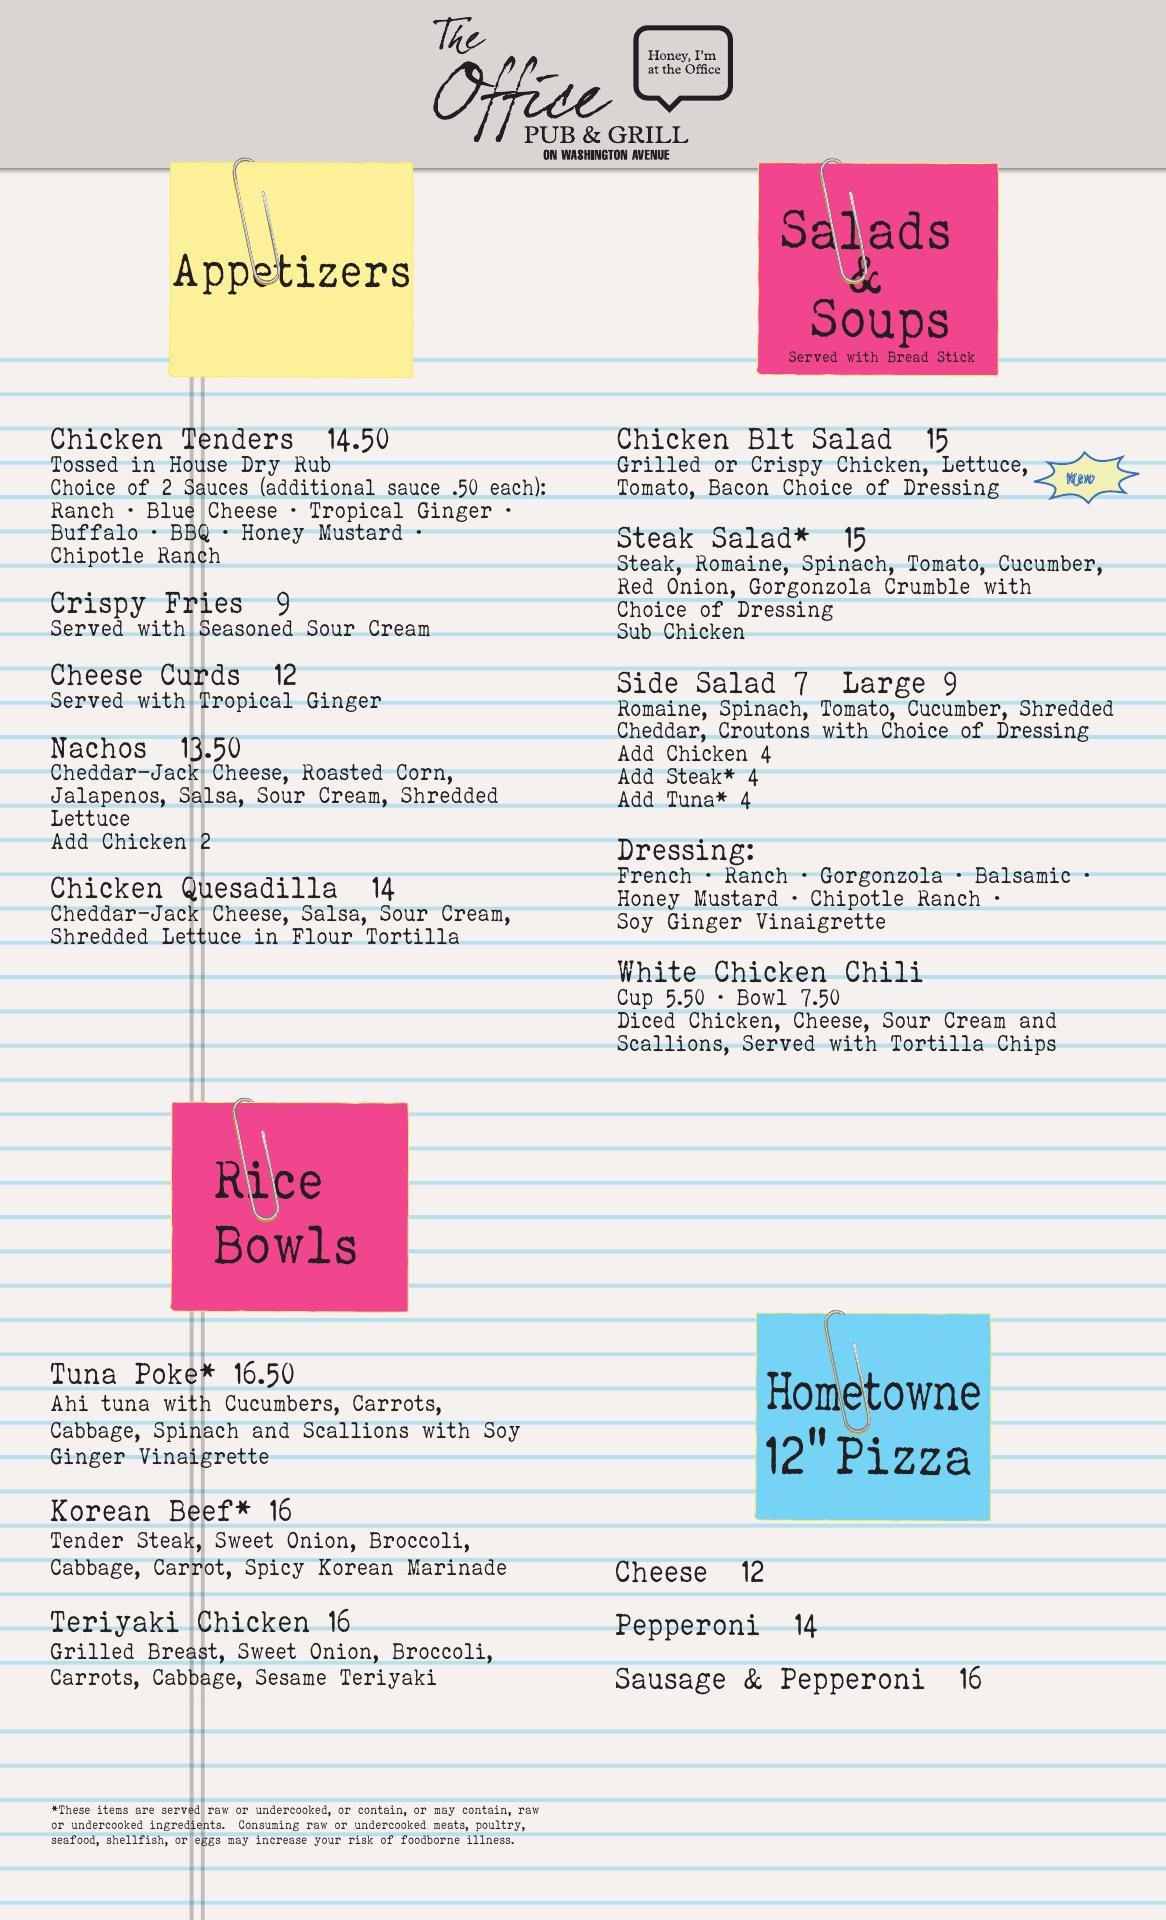 The
Office
Honey, I'm
at the Office
PUB & GRILL
ON WASHINGTON AVENUE
Appetizers
Chicken Tenders 14.50
Tossed in House Dry Rub
Choice of 2 Sauces (additional sauce .50 each):
Ranch · Blue Cheese · Tropical Ginger ·
Buffalo · BBQ · Honey Mustard ·
Chipotle Ranch
Crispy Fries 9
Served with Seasoned Sour Cream
Cheese Curds 12
Served with Tropical Ginger
Nachos 13.50
Cheddar-Jack Cheese, Roasted Corn,
Jalapenos, Salsa, Sour Cream, Shredded
Lettuce
Add Chicken 2
Chicken Quesadilla 14
Cheddar-Jack Cheese, Salsa, Sour Cream,
Shredded Lettuce in Flour Tortilla
Salads
&
Soups
Served with Bread Stick
Chicken Blt Salad 15
Grilled or Crispy Chicken, Lettuce,
Tomato, Bacon Choice of Dressing
New
Steak Salad* 15
Steak, Romaine, Spinach, Tomato, Cucumber,
Red Onion, Gorgonzola Crumble with
Choice of Dressing
Sub Chicken
Side Salad 7 Large 9
Romaine, Spinach, Tomato, Cucumber, Shredded
Cheddar, Croutons with Choice of Dressing
Add Chicken 4
Add Steak* 4
Add Tuna* 4
Dressing:
French · Ranch · Gorgonzola · Balsamic ·
Honey Mustard · Chipotle Ranch ·
Soy Ginger Vinaigrette
White Chicken Chili
Cup 5.50 · Bowl 7.50
Diced Chicken, Cheese, Sour Cream and
Scallions, Served with Tortilla Chips
Rice
Bowls
Tuna Poke* 16.50
Ahi tuna with Cucumbers, Carrots,
Cabbage, Spinach and Scallions with Soy
Ginger Vinaigrette
Korean Beef* 16
Tender Steak, Sweet Onion, Broccoli,
Cabbage, Carrot, Spicy Korean Marinade
Teriyaki Chicken 16
Grilled Breast, Sweet Onion, Broccoli,
Carrots, Cabbage, Sesame Teriyaki
Hometowne
12" Pizza
Cheese 12
Pepperoni 14
Sausage & Pepperoni 16
*These items are served raw or undercooked, or contain, or may contain, raw
or undercooked ingredients. Consuming raw or undercooked meats, poultry,
seafood, shellfish, or eggs may increase your risk of foodborne illness.